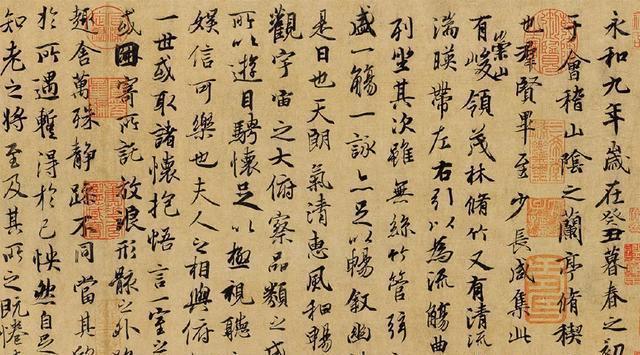 永和九年歲在癸丑暮春之初
于會稽山陰之蘭亭脩稧
也羣賢畢至少長咸集此
有崇山峻領茂林脩竹又有清流
湍暎帶左右引以為流觴曲
列坐其次雖無絲竹管弦
盛一觴一詠亦足以暢叙幽
是日也天朗氣清惠風和暢
觀宇宙之大俯察品類之盛
所以遊目騁懷足以極視聽
娛信可樂也夫人之相與俯
一世或取諸懷抱悟言一室之
或因寄所託放浪形骸之外
趣舍萬殊靜躁不同當其欣
於所遇暫得於己怏然自足
知老之將至及其所之既惓